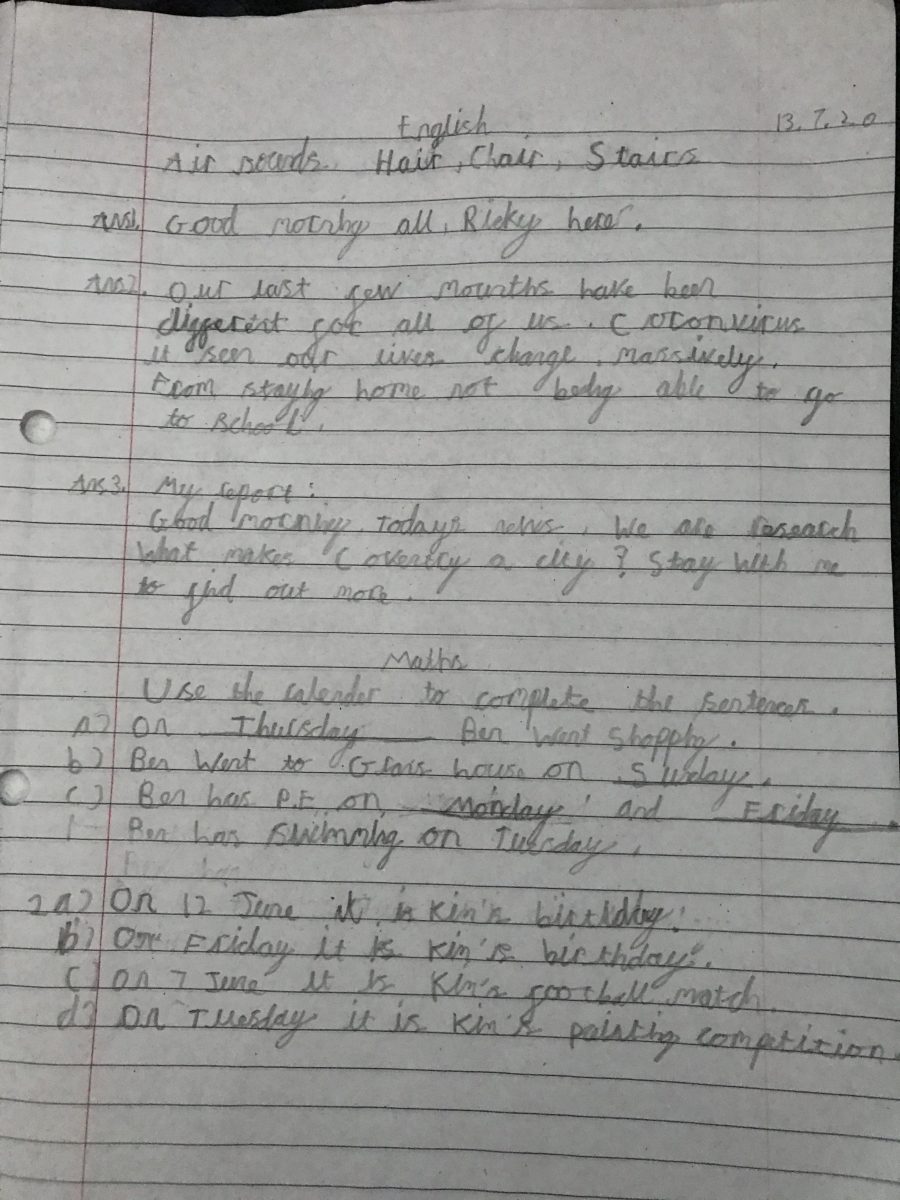 English 13.7.20
Air sounds. Hair, Chair, Stairs
Ans1. Good morning all, Ricky here.
Ans2. Our last few mounths have been
different for all of us. Coronvirus
seen our lives change massively.
From staying home not being able to go
to school.
Ans3. My report:
Good morning Today's news. We are research
What makes Coventry a city? Stay with me
to find out more.
Maths
Use the calender to complete the sentences.
a) On Thursday Ben went shopping.
b) Ben went to Grans house on Sunday.
c) Ben has P.E on Monday and Friday.
Ben has swimming on Tuesday.
2a) On 12 June it is Kim's birthday.
b) On Friday it is Kim's birthday.
c) On 7 June it is Kim's football match.
d) On Tuesday it is Kim's painting comptition.